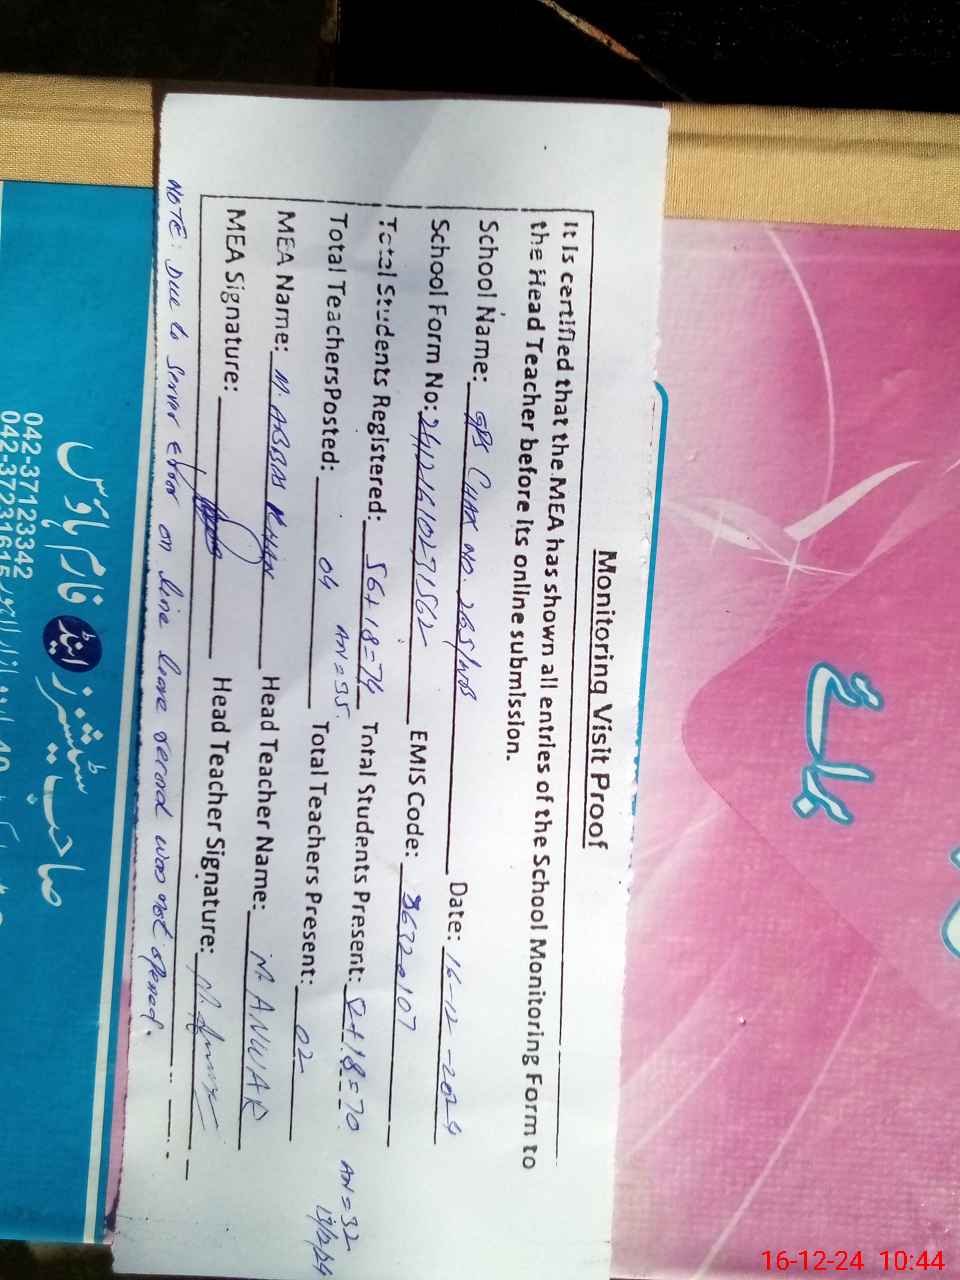 Monitoring Visit Proof
It is certified that the MEA has shown all entries of the School Monitoring Form to
the Head Teacher before its online submission.
School Name: GPS CHAK NO. 265/WB Date: 16-12-2024
School Form No: EMIS Code: 36320107
Total Students Registered: 56+18=74 Total Students Present: +18=70
AN=35 AN=32
Total Teachers Posted: 04 Total Teachers Present: 02
MEA Name: M. ABBAS KHAN Head Teacher Name: M. ANWAR
MEA Signature: Head Teacher Signature: M. Anwar
NOTE: Due to server error on line leave record was not opened.
صاحب سٹیشنرز اینڈ فارم ہاؤس
042-37123342
042-37231615
16-12-24 10:44